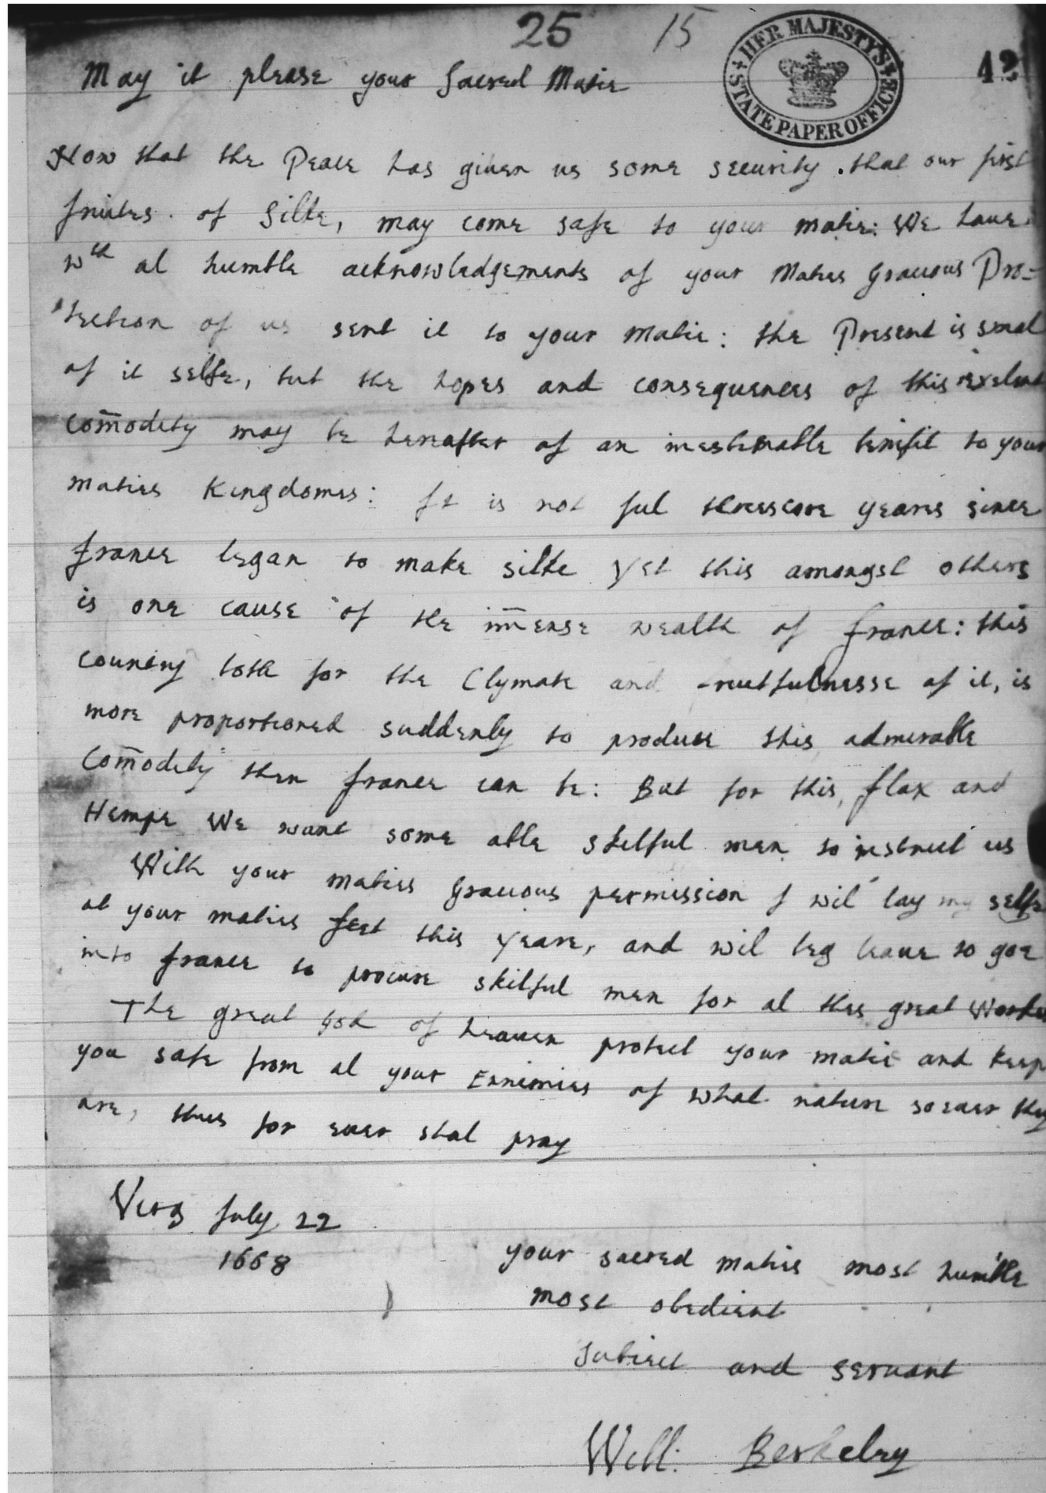 25 15
HER MAJESTY'S STATE PAPER OFFICE
42
May it please your Sacred Matie
Now that the Peace has given us some security that our first
fruites of Silke, may come safe to your matie: We have
wth al humble acknowledgements of your Maties Gracious Pro=
tection of us sent it to your Matie: the Present is smal
of it selfe, but the hopes and consequences of this exelent
com̄odity may be hereafter of an inestimable benifit to your
maties Kingdomes: It is not ful threescore yeares since
france began to make silke yet this amongst others
is one cause of the im̄ense wealth of france: this
country both for the Clymate and fruitfulnesse of it, is
more proportioned suddenly to produce this admirable
Com̄odity then france can be: But for this, flax and
Hempe We want some able skilful men to instruct us
With your maties Gracious permission I wil lay my selfe
at your maties feet this yeare, and wil beg leave to goe
into france to procure skilful men for al thes great Workes
The great God of heaven protect your matie and keep
you safe from al your Ennimies of what nature soever they
are, thus for ever shal pray
Virg July 22
1668
your sacred maties most humble
most obedient
Subiect and servant
Will: Berkelry